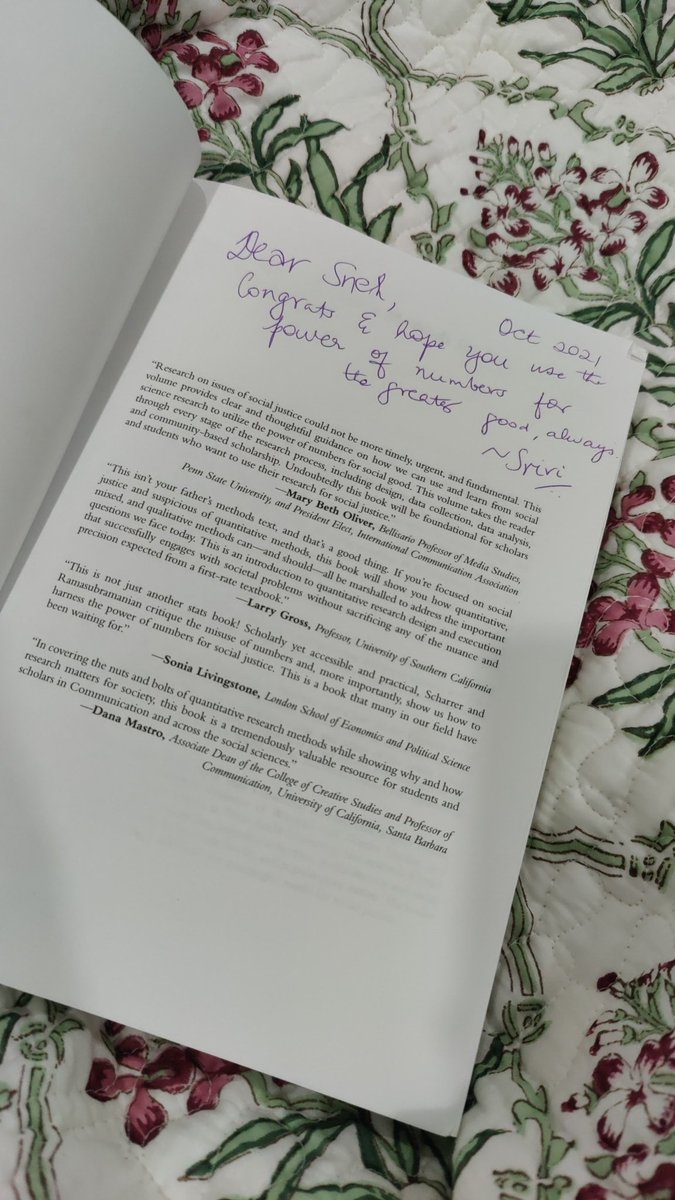 Dear Sneh,
Oct 2021
Congrats & hope you use the
power of numbers for
the greater good, always
~Srivi
“Research on issues of social justice could not be more timely, urgent, and fundamental. This
volume provides clear and thoughtful guidance on how we can use and learn from social
science research to utilize the power of numbers for social good. This volume takes the reader
through every stage of the research process, including design, data collection, data analysis,
and community-based scholarship. Undoubtedly this book will be foundational for scholars
and students who want to use their research for social justice.”
—Mary Beth Oliver, Bellisario Professor of Media Studies,
Penn State University, and President Elect, International Communication Association
“This isn’t your father’s methods text, and that’s a good thing. If you’re focused on social
justice and suspicious of quantitative methods, this book will show you how quantitative,
mixed, and qualitative methods can—and should—all be marshalled to address the important
questions we face today. This is an introduction to quantitative research design and execution
that successfully engages with societal problems without sacrificing any of the nuance and
precision expected from a first-rate textbook.”
—Larry Gross, Professor, University of Southern California
“This is not just another stats book! Scholarly yet accessible and practical, Scharrer and
Ramasubramanian critique the misuse of numbers and, more importantly, show us how to
harness the power of numbers for social justice. This is a book that many in our field have
been waiting for.”
—Sonia Livingstone, London School of Economics and Political Science
“In covering the nuts and bolts of quantitative research methods while showing why and how
research matters for society, this book is a tremendously valuable resource for students and
scholars in Communication and across the social sciences.”
—Dana Mastro, Associate Dean of the College of Creative Studies and Professor of
Communication, University of California, Santa Barbara